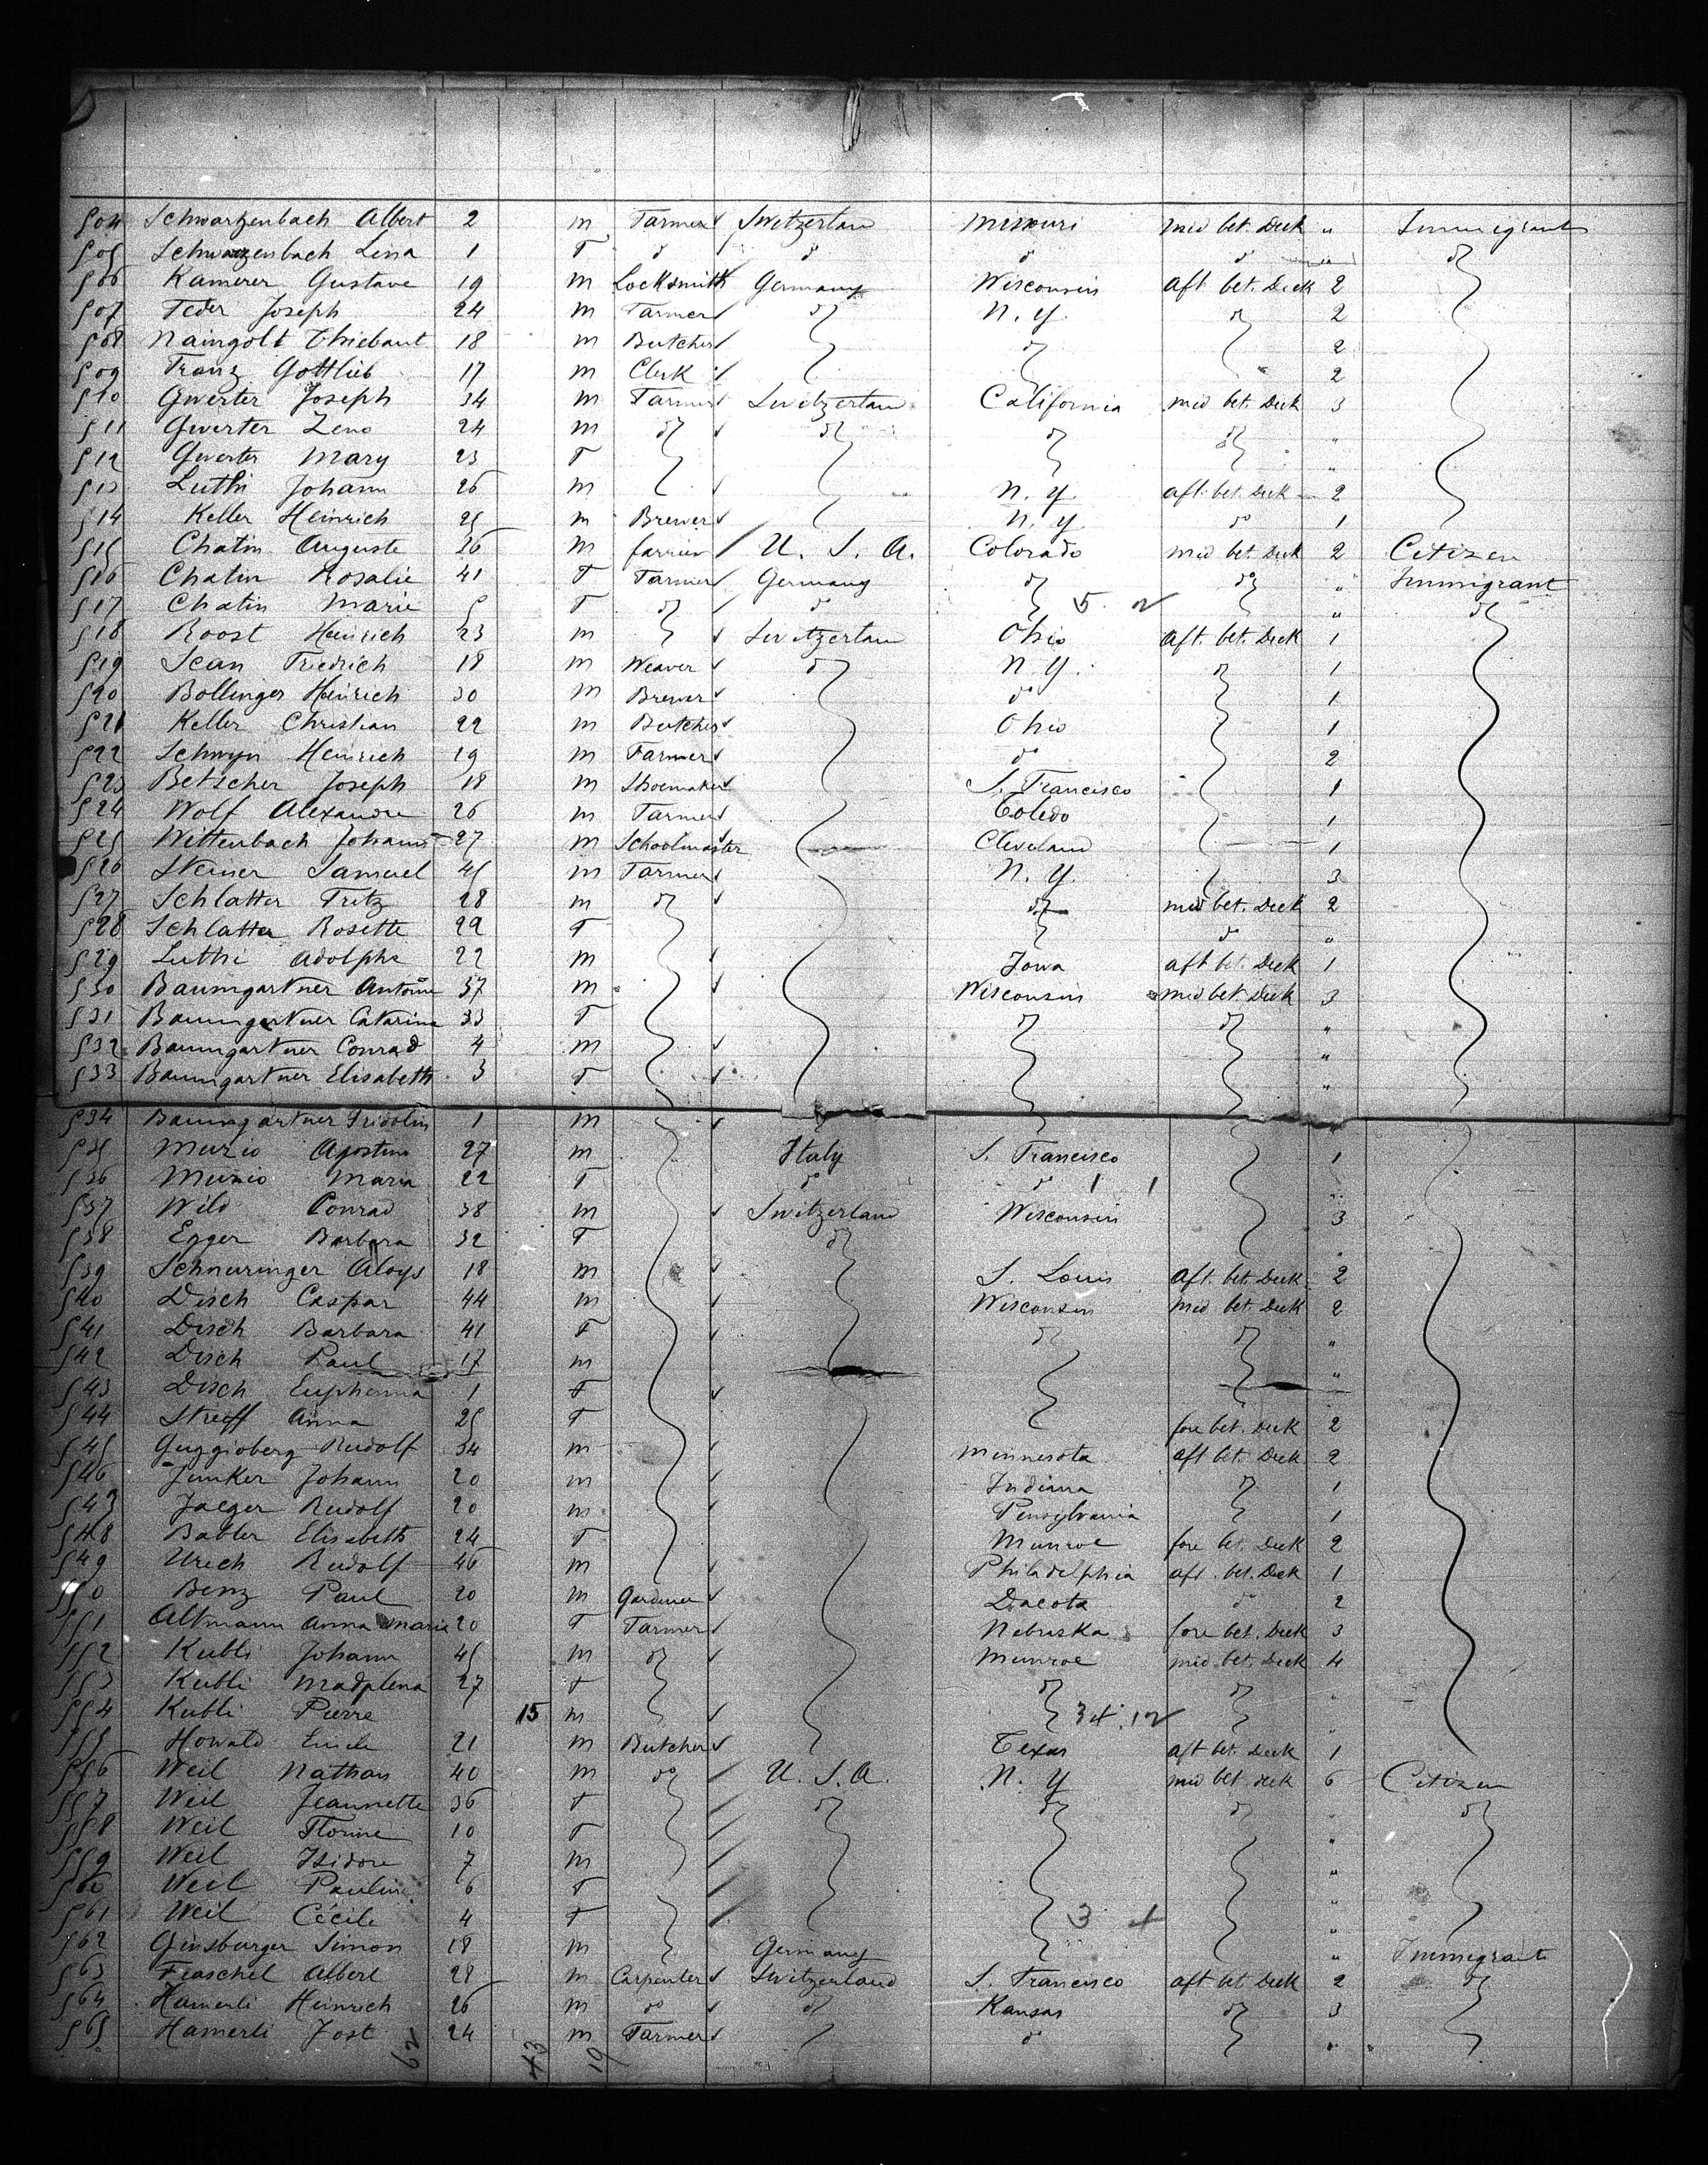 504 Schwarzenbach Albert 2 m Farmer Switzerlan Missouri mid bet. Deck " Immigrants
505 Schwarzenbach Lina 1 F do do do do do
506 Kamerer Gustave 19 m Locksmith Germany Wisconsin aft. bet. Deck 2
507 Feder Joseph 24 m Farmer do N. Y. do 2
508 Naingolt Thiebaut 18 m Butcher do 2
509 Franz Gottlieb 17 m Clerk 2
510 Gwerter Joseph 34 m Farmer Switzerlan California mid bet. Deck 3
511 Gwerter Zeno 24 m do do do do "
512 Gwerter Mary 23 F "
513 Luthi Johann 26 m N. Y. aft. bet. Deck 2
514 Keller Heinrich 25 m Brewer N. Y. do 1
515 Chatin Auguste 36 m farrier U. S. A. Colorado mid bet. Deck 2 Citizen
516 Chatin Rosalie 41 F Farmer Germany do do " Immigrant
517 Chatin Marie 5 F do do 5 2 " do
518 Roost Heinrich 23 m Switzerlan Ohio Aft. bet. Deck 1
519 Jean Friedrich 18 m Weaver do N. Y. do 1
520 Bollinger Heinrich 30 m Brewer do 1
521 Keller Christian 22 m Butcher Ohio 1
522 Schwyn Heinrich 19 m Farmer do 2
523 Betscher Joseph 18 m Shoemaker S. Francisco 1
524 Wolf Alexandre 26 m Farmer Toledo 1
525 Wittenbach Johann 27 m Schoolmaster Cleveland 1
526 Steiner Samuel 45 m Farmer N. Y. 3
527 Schlatter Fritz 28 m do do mid bet. Deck 2
528 Schlatter Rosette 22 F do "
529 Luthi Adolphe 22 m Iowa aft bet. Deck 1
530 Baumgartner Antoine 37 m Wisconsin mid bet Deck 3
531 Baumgartner Catarina 33 F do do "
532 Baumgartner Conrad 4 m "
533 Baumgartner Elisabeth 3 F "
534 Baumgartner Fridolin 1 m "
535 Muzio Agostino 27 m Italy S. Francisco 1
536 Muzio Maria 22 F do do 1 1 "
537 Wild Conrad 38 m Switzerland Wisconsin 3
538 Egger Barbara 32 F do "
539 Schnuringer Aloys 18 m S. Louis Aft. bet. Deck 2
540 Disch Caspar 44 m Wisconsin mid bet. Deck 2
541 Disch Barbara 41 F do do "
542 Disch Paul 17 m "
543 Disch Euphemia 1 F
544 Streiff Anna 25 F fore bet. Deck 2
545 Guggioberg Rudolf 34 m Minnesota aft bet. Deck 2
546 Junker Johann 20 m Indiana do 1
547 Jaeger Rudolf 20 m Pensylvania 1
548 Babler Elisabeth 24 F Munroe fore bet. Deck 2
549 Urech Rudolf 46 m Philadelphia aft. bet. Deck 1
550 Benz Paul 20 m Gardener Dacota do 2
551 Altmann Anna Maria 20 F Farmer Nebraska fore bet. Deck 3
552 Kubli Johann 45 m do Munroe mid bet. Deck 4
553 Kubli Madplena 27 F do do "
554 Kubli Pierre 15 m 34 12 "
555 Howald 21 m Butcher Texas aft bet. Deck 1
556 Weil Nathan 40 m do U. S. A. N. Y mid bet. deck 6 Citizen
557 Weil Jeannette 36 F do do do " do
558 Weil Florine 10 F "
559 Weil Isidore 7 m "
560 Weil Pauline 6 F "
561 Weil Cécile 4 F 3 4 "
562 Ginsburger Simon 18 m Germany " Immigrant
563 Fraschel Albert 28 m Carpenter Switzerland S. Francisco aft bet. Deck 2 do
564 Hamerli Heinrich 26 m do do Kansas do 3
565 Hamerli Jost 24 m Farmer do "
62 43 19